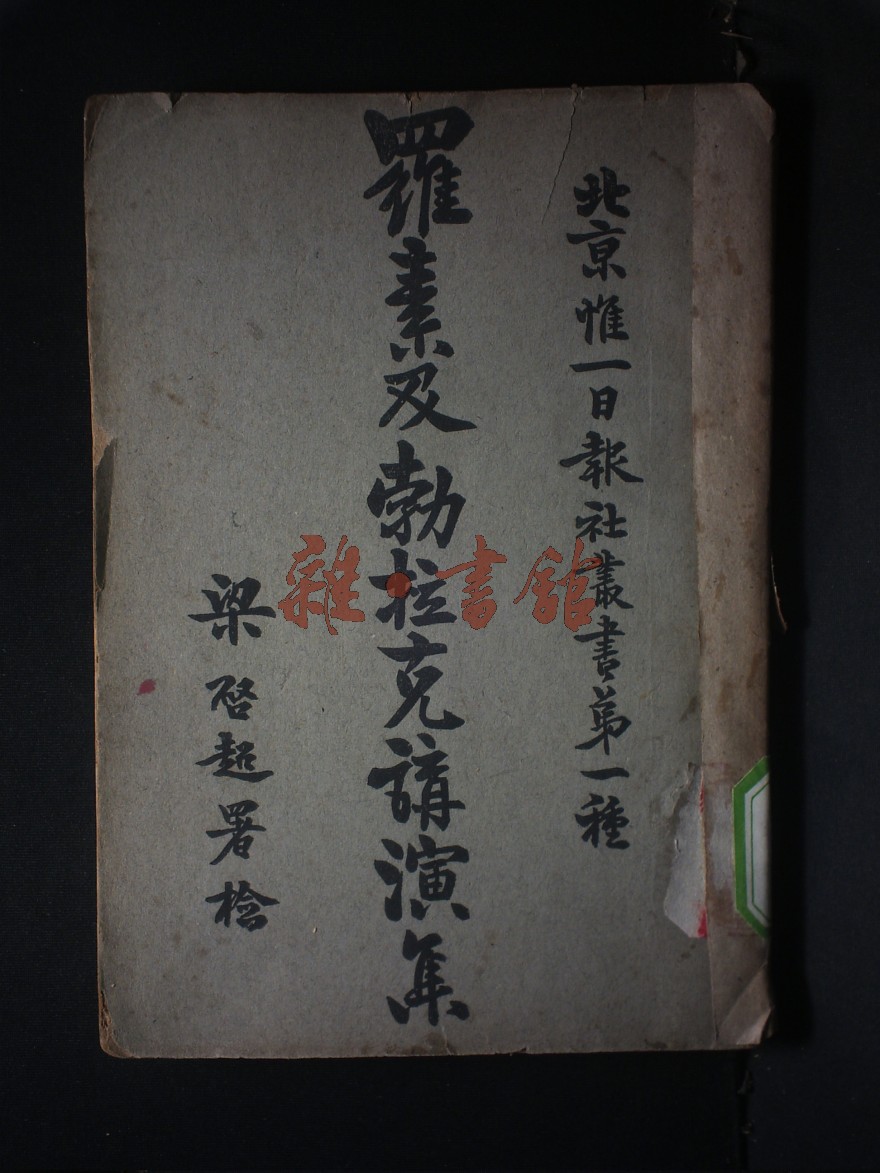 北京惟一日報社叢書第一種
羅素及勃拉克講演集
梁啓超署檢
雜·書館